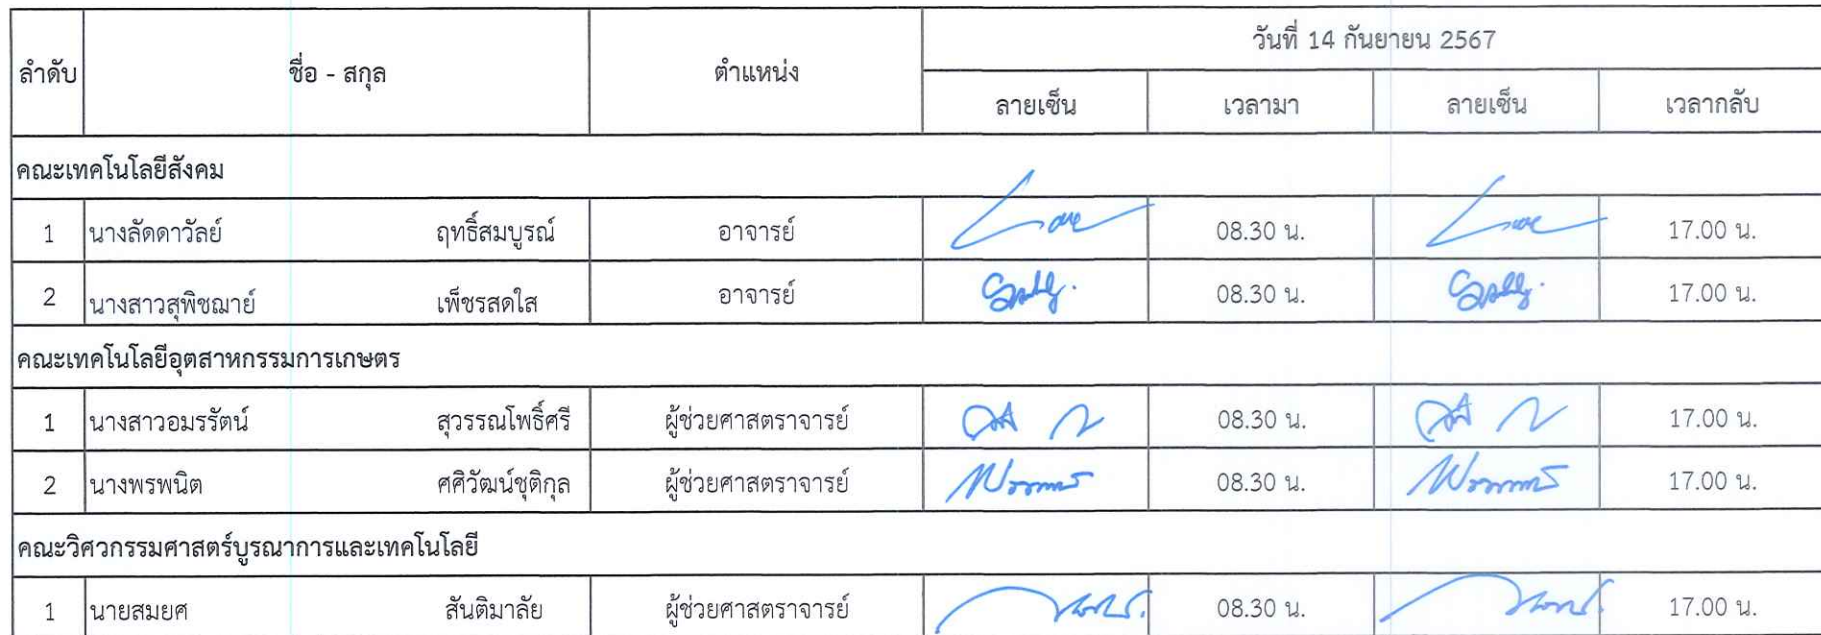 ลำดับ ชื่อ - สกุล ตำแหน่ง วันที่ 14 กันยายน 2567
ลายเซ็น เวลามา ลายเซ็น เวลากลับ
คณะเทคโนโลยีสังคม
1 นางลัดดาวัลย์ ฤทธิ์สมบูรณ์ อาจารย์ 08.30 น. 17.00 น.
2 นางสาวสุพิชฌาย์ เพ็ชรสดใส อาจารย์ 08.30 น. 17.00 น.
คณะเทคโนโลยีอุตสาหกรรมการเกษตร
1 นางสาวอมรรัตน์ สุวรรณโพธิ์ศรี ผู้ช่วยศาสตราจารย์ 08.30 น. 17.00 น.
2 นางพรพนิต ศศิวัฒน์ชุติกุล ผู้ช่วยศาสตราจารย์ 08.30 น. 17.00 น.
คณะวิศวกรรมศาสตร์บูรณาการและเทคโนโลยี
1 นายสมยศ สันติมาลัย ผู้ช่วยศาสตราจารย์ 08.30 น. 17.00 น.